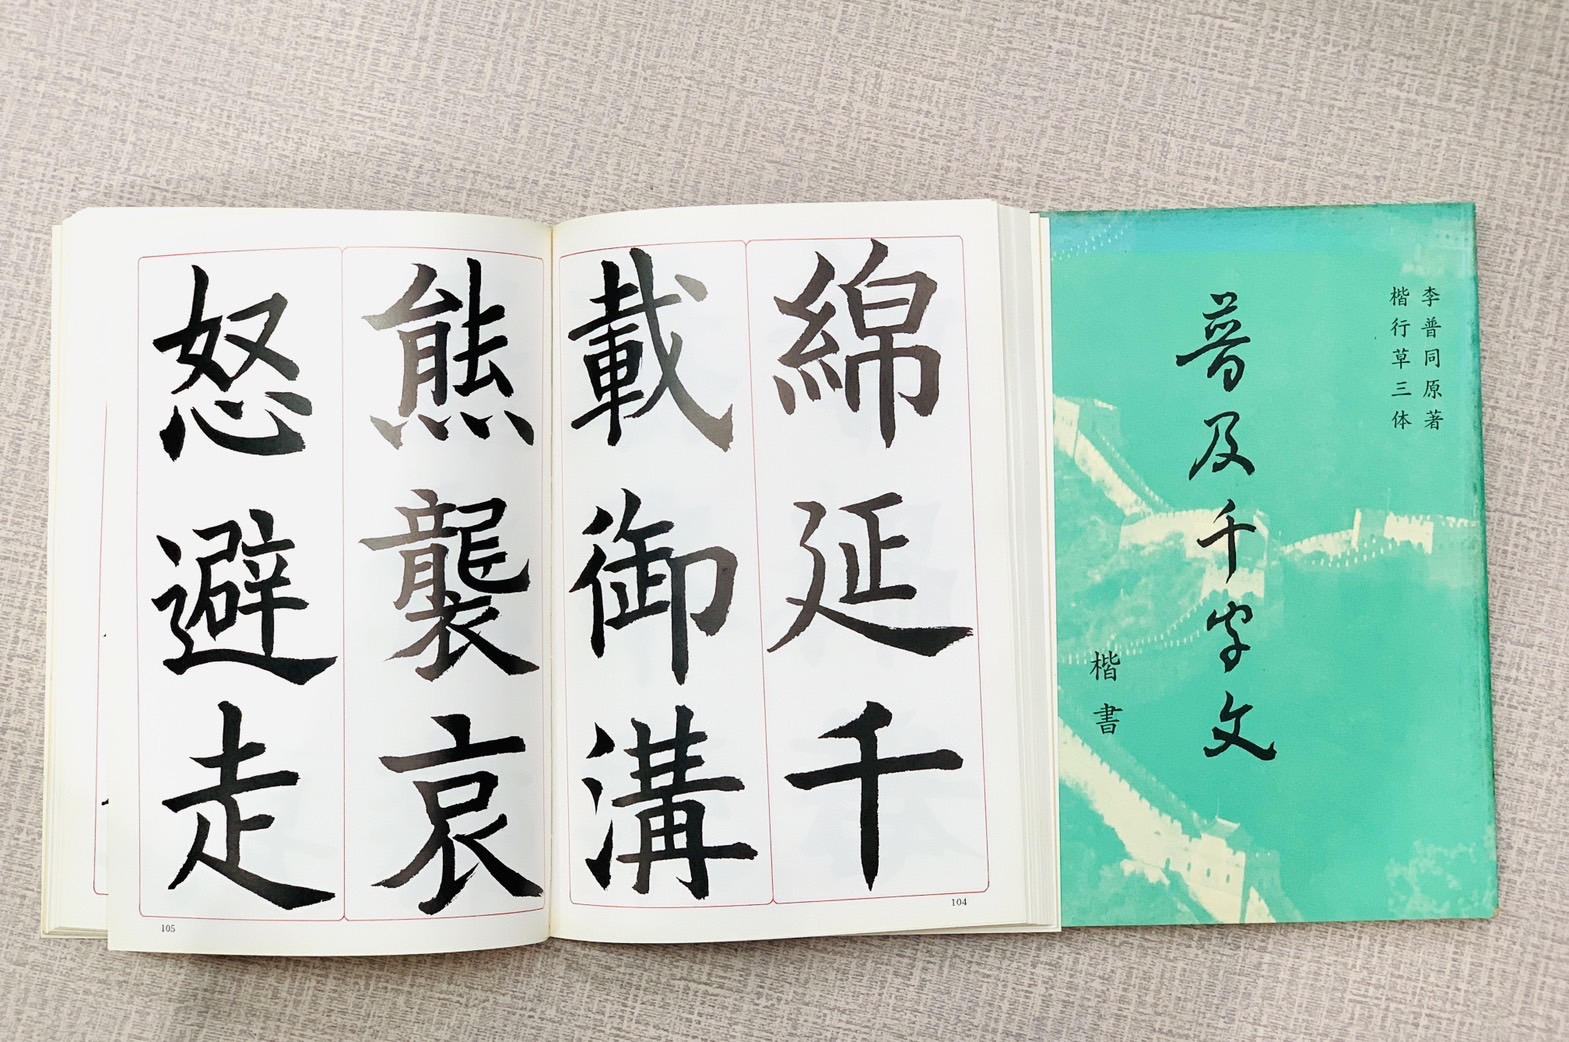 李普同原著
楷行草三体
普及千字文
楷書
綿延千
載御溝
104
熊襲哀
怒避走
105